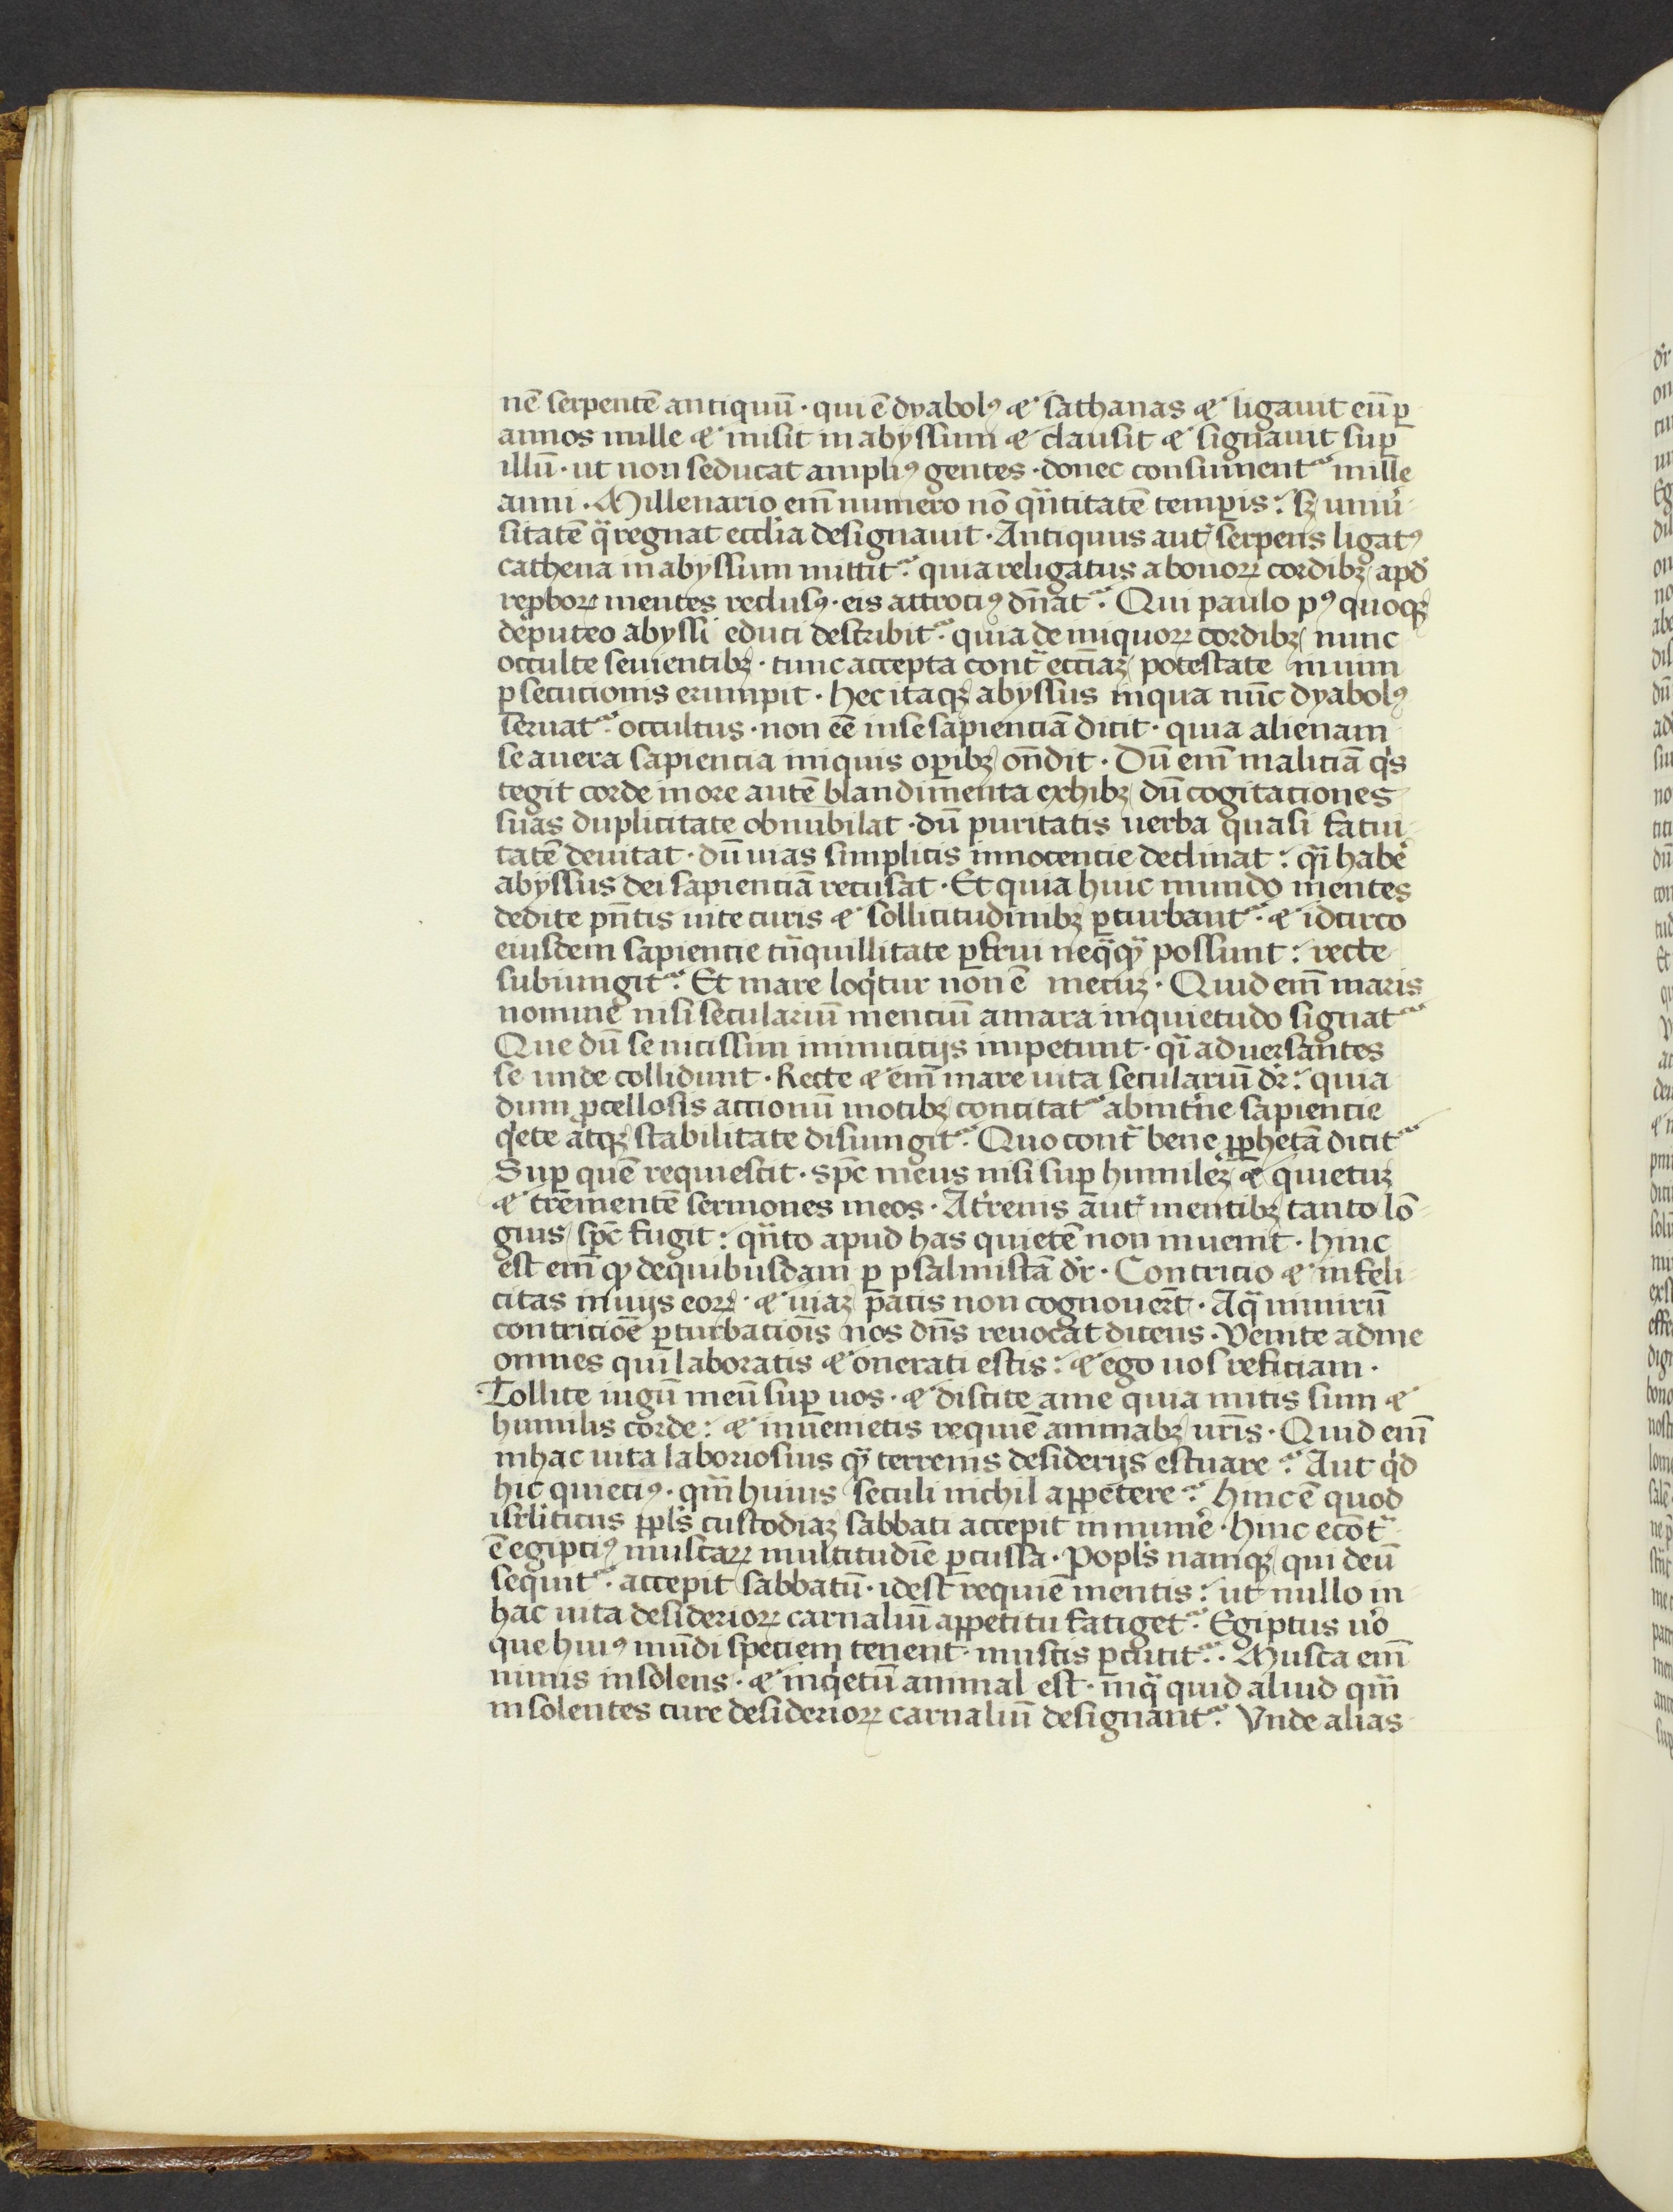 nē serpentē antiquū · qui ē dyabolꝰ ⁊ sathanas ⁊ ligauit eū ꝑ
annos mille ⁊ misit in abyssum ⁊ clausit ⁊ signauit suꝑ
illū · ut non seducat ampliꝰ gentes · donec consumentᷣ mille
anni · Millenario em̄ numero nō qͣntitatē temꝑis : sꝫ uniuͥ
sitatē qͣ regnat eccl̄ia designauit · Antiquus aut̄ serpens ligatꝰ
cathena in abyssum mittitᷣ : quia religatus a bonoꝝ cordibꝫ apđ
reꝓboꝝ mentes reclusꝰ · eis attrociꝰ dn̄atᷣ : Qui paulo pꝰ quoqꝫ
de puteo abyssi educi describitᷣ : quia de iniquoꝝ cordibꝫ nunc
occulte seuientibꝫ · tunc accepta contͣ eccl̄iaꝫ potestate in uim
ꝑsecucionis erumpit · Hec itaqꝫ abyssus in qua nūc dyabolꝰ
seruatᷣ occultus · non eē in se sapienciā dicit · quia alienam
se a uera sapiencia iniquis oꝑibꝫ on̄dit · Dū em̄ maliciā qͥs
tegit corde in ore autē blandimenta exhibꝫ dū cogitationes
suas duplicitate obnubilat · dū puritatis uerba quasi fatui
tatē deuitat · dū uias simplicis innocencie declinat : qͣi habē
abyssus dei sapienciā recusat · Et quia huic mundo mentes
dedite pn̄tis uite curis ⁊ sollicitudinibꝫ ꝑturbantᷣ : ⁊ idcirco
eiusdem sapiencie tͣnquillitate ꝑfrui neqͣqͣ possunt : recte
subiungitᷣ : Et mare loqͥtur non ē mecuꝫ · Quid em̄ maris
nomine nisi seculariū menciū amara inquietudo signatᷣ
Que dū se uicissim inimicitijs impetunt · qͣi aduersantes
se unde collidunt · Recte ⁊em̄ mare uita seculariū dr̄ : quia
dum ꝓcellosis actionū motibꝫ concitatᷣ ab int̄ne sapiencie
qͥete atqꝫ stabilitate disiungitᷣ : Quo contͣ bene ꝓphetā dicitᷣ
Suꝑ quē requiescit · spc̄ meus nisi suꝑ humileꝫ ⁊ quietuꝫ
⁊ trementē sermones meos · At̄renis aut̄ mentibꝫ tanto lō
gius spc̄ fugit : qͣnto apud has quietē non inuenit · Hinc
est em̄ qđ de quibusdam ꝑ psalmistā dr̄ · Contricio ⁊ infeli
citas in uijs eoꝝ · ⁊ uiaꝫ pacis non cognouer̄t · A qͣ nimirū
contricioē ꝑturbacioīs nos dn̄s reuocat dicens · Venite ad me
omnes qui laboratis ⁊ onerati estis : ⁊ ego uos reficiam ·
Tollite iugū meū suꝑ uos · ⁊ discite a me quia mitis sum ⁊
humilis corde : ⁊ inuenietis requiē animabꝫ ur̄is · Quid em̄
in hac uita laboriosius qͣ terrenis desiderijs estuare : Aut qͥd
hic quieciꝰ · qͣm̄ huius seculi nichil appetere : Hinc ē quod
isrl̄iticus ppl̄s custodiaꝫ sabbati accepit in mun̄e · Hinc econtͣ
ē egiptꝰ muscaꝝ multitudīe ꝑcussa · Popl̄s namqꝫ qui deū
sequitᷣ · accepit sabbatū · idest requiē mentis : ut nullo in
hac uita desiderioꝝ carnaliū appetitu fatigetᷣ · Egiptus uͦo
que huiꝰ mūdi speciem tenent · muscis ꝑcutitᷣ · Musca em̄
nimis insolens · ⁊ inqͥetū animal est · in qͣ quid aliud qͣm̄
insolentes cure desiderioꝝ carnaliū designantᷣ : Vnde alias